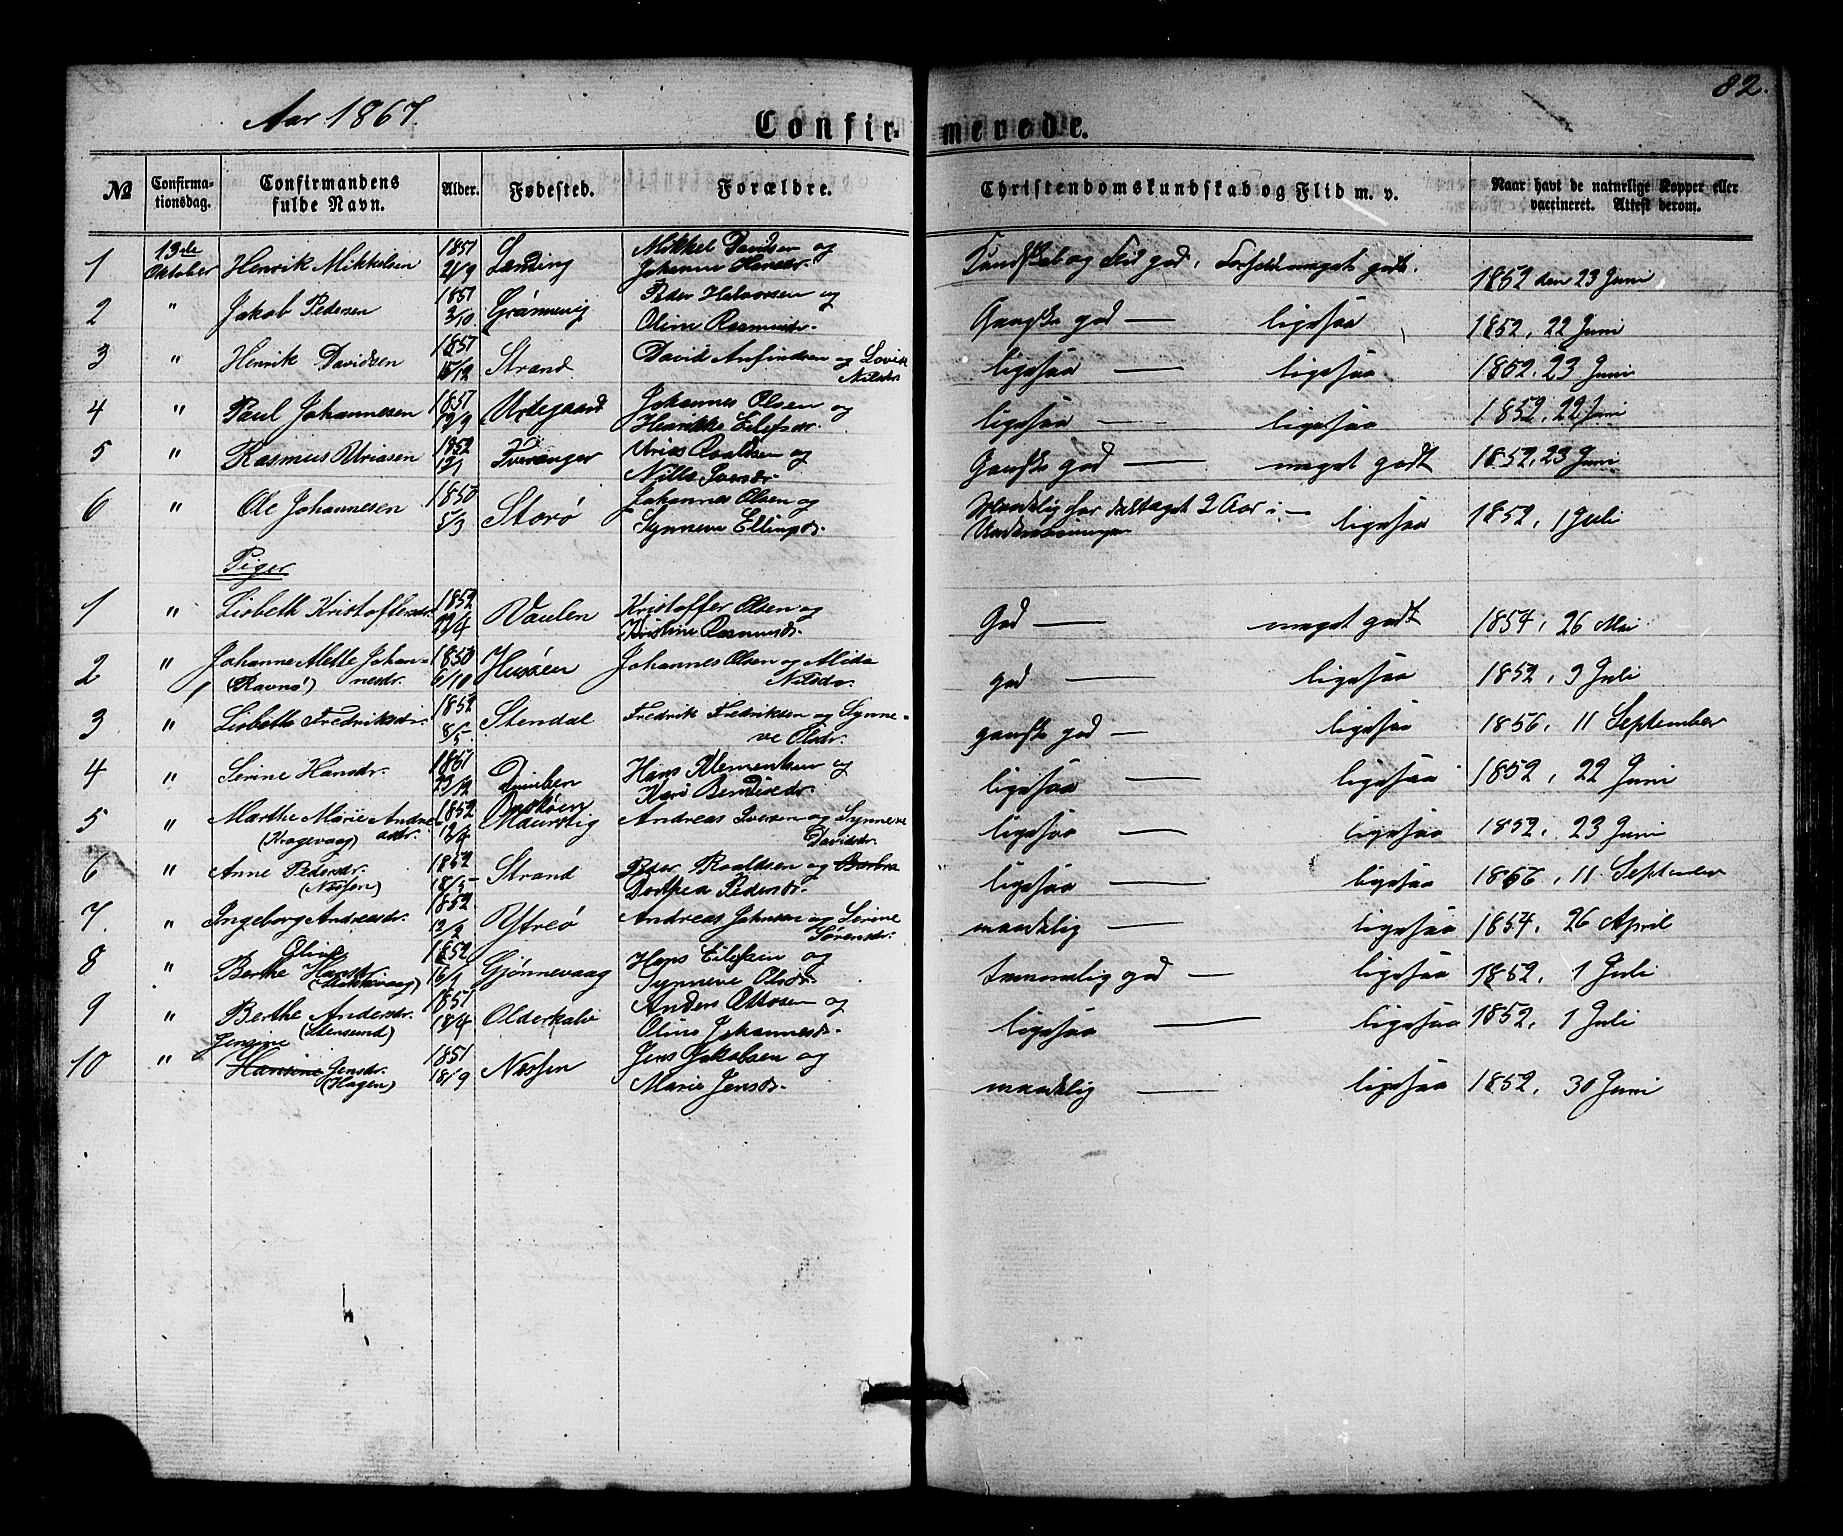 82.
Aar 1867.
Confirmerede.
№ Confirmationsdag. Confirmandens fulde Navn. Alder. Fødested. Forældre. Christendomskundskab og Flid m. v. Naar havt de naturlige Kopper eller vaccineret. Attest derom.
1 13de Oktober Henrik Mikkelsen 1851 Mikkel Davidsen og Johanne Hansdr. Kundskab og Flid god, Forhold meget godt. 1852 den 23 Juni
2 " Jakob Pedersen 1851 3/10. Grønnevig Peder Halvorsen og Oline Rasmusdr. Ganske god — ligesaa 1852, 22 Juni
3 " Henrik Davidsen 1851 15/12 Strand David Anfindsen og Lovise Nilsdr ligesaa — ligesaa 1852. 23 Juni
4 " Paul Johannesen 1851 Utegaard Johannes Olsen og Henrikke Eilefsdr. ligesaa — ligesaa 1852, 22 Juni
5 " Rasmus Uriasen 1852 12/1 Tveranger Urias Roaldsen og Nille Iversdr Ganske god — meget godt 1852, 23 Juni
6 " Ole Johannesen 1850 5/3 Storø Johannes Olsen og Synneve Ellingsdr. Maadelig har deltaget 2 Aar i Underviisningen — ligesaa 1852, 1 Juli
Piger
1 " Lisbeth Kristoffersdr. 1852 22/4 Vaulen Kristoffer Olsen og Kristine Rasmusdr. God — meget godt 1854, 26 Mai
2 " Johanne Mette Johannesdr. (Ravnø) 1850 6/10 Husøen Johannes Olsen og Alida Nilsdr. god — ligesaa 1852, 9 Juli
3 " Lisbeth Fredriksdr. 1852 8/5. Stendal Fredrik Fredriksen og Synneve Olsdr. ganske god — ligesaa 1856, 11 September
4 " Serine Hansdr. 1851 23/12 Hans Klementsen og Kari ligesaa — ligesaa 1852, 22 Juni
5 " Marthe Marie Andreasdr. (Kragevaag) 1852 12/4 Buskøen Maurstig Andreas Iversen og Synneve Davidsdr. ligesaa — ligesaa 1852, 23 Juni
6 " Anne Pedersdr. (Næssen) 1852 18/5 Strand Peder Roaldsen og Barbra Dorthea Pedersdr. ligesaa — ligesaa 1856, 11 September
7. " Ingeborg Andreasdr. 1852. 12/2 Ystreø Andreas Johnsen og Serine Sørensdr. maadelig — ligesaa 1854, 26 April
8 " Berthe Oline Hansdr. 1852 16/1 Gjønnevaag Hans Eilefsen og Synneve Olsdr. temmelig god — ligesaa 1852, 1 Juli
9 " Berthe Andersdr. (Stensund) 1851 18/4 Olderkalv Anders Ottosen og Oline Johannesdr. ligesaa — ligesaa 1852, 1 Juli
10 " Jensine Hansine Jensdr. (Hagen) 1851 18/9 Næssen Jens Jakobsen og Marie Jensdr. maadelig — ligesaa 1852, 30 Juni